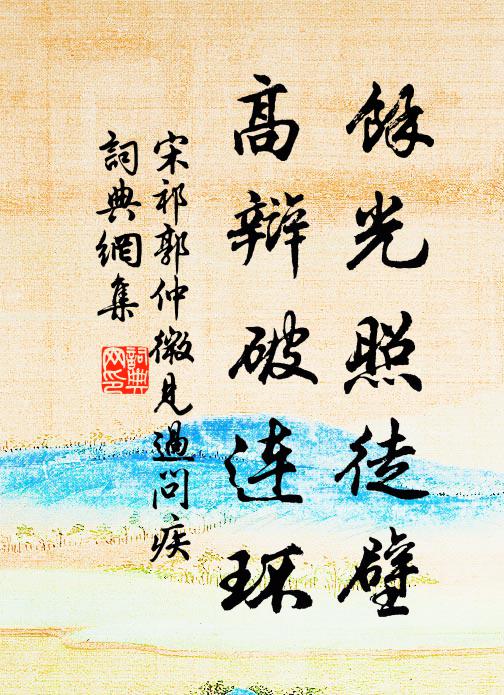 餘光照徒壁
高辯破连环
宋祁郭仲微見過問疾
詞典網集
詞典
网印